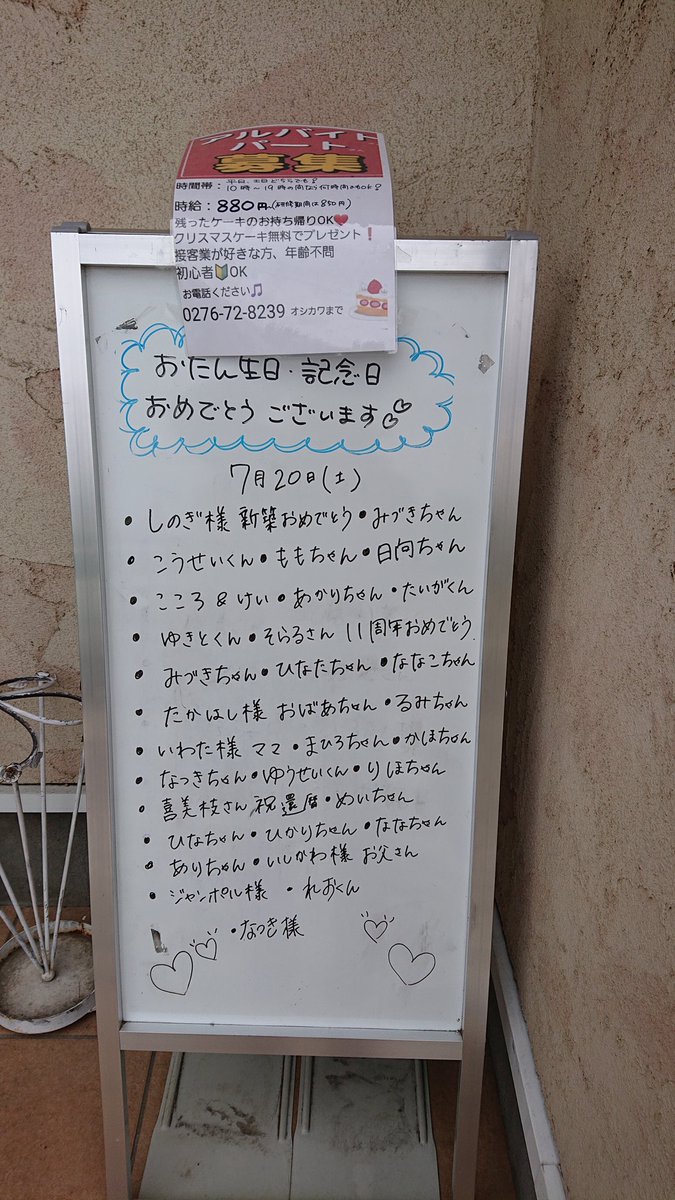 アルバイト
パート
募集
平日、土日どちらでも!
時間帯：10時～19時の間なら何時間でもOK!
時給：880円(研修期間は850円)
残ったケーキのお持ち帰りOK❤
クリスマスケーキ無料でプレゼント❗
接客業が好きな方、年齢不問
初心者🔰OK
お電話ください🎵
0276-72-8239 オシカワまで
おたん生日・記念日
おめでとうございます♡♡
7月20日(土)
・しのぎ様 新築おめでとう・みづきちゃん
・こうせいくん・ももちゃん・日向ちゃん
・こころ & けい・あかりちゃん・たいがくん
・ゆきとくん・そらるさん 11周年おめでとう
・みづきちゃん・ひなたちゃん・ななこちゃん
・たかはし様 おばあちゃん・るみちゃん
・いわた様 ママ・まひろちゃん・かほちゃん
・なつきちゃん・ゆうせいくん・りほちゃん
・喜美枝さん 祝還暦・めいちゃん
・ひなちゃん・ひかりちゃん・ななちゃん
・ありちゃん・いしかわ様 お父さん
・ジャンポル様 ・れおくん
・なつき様